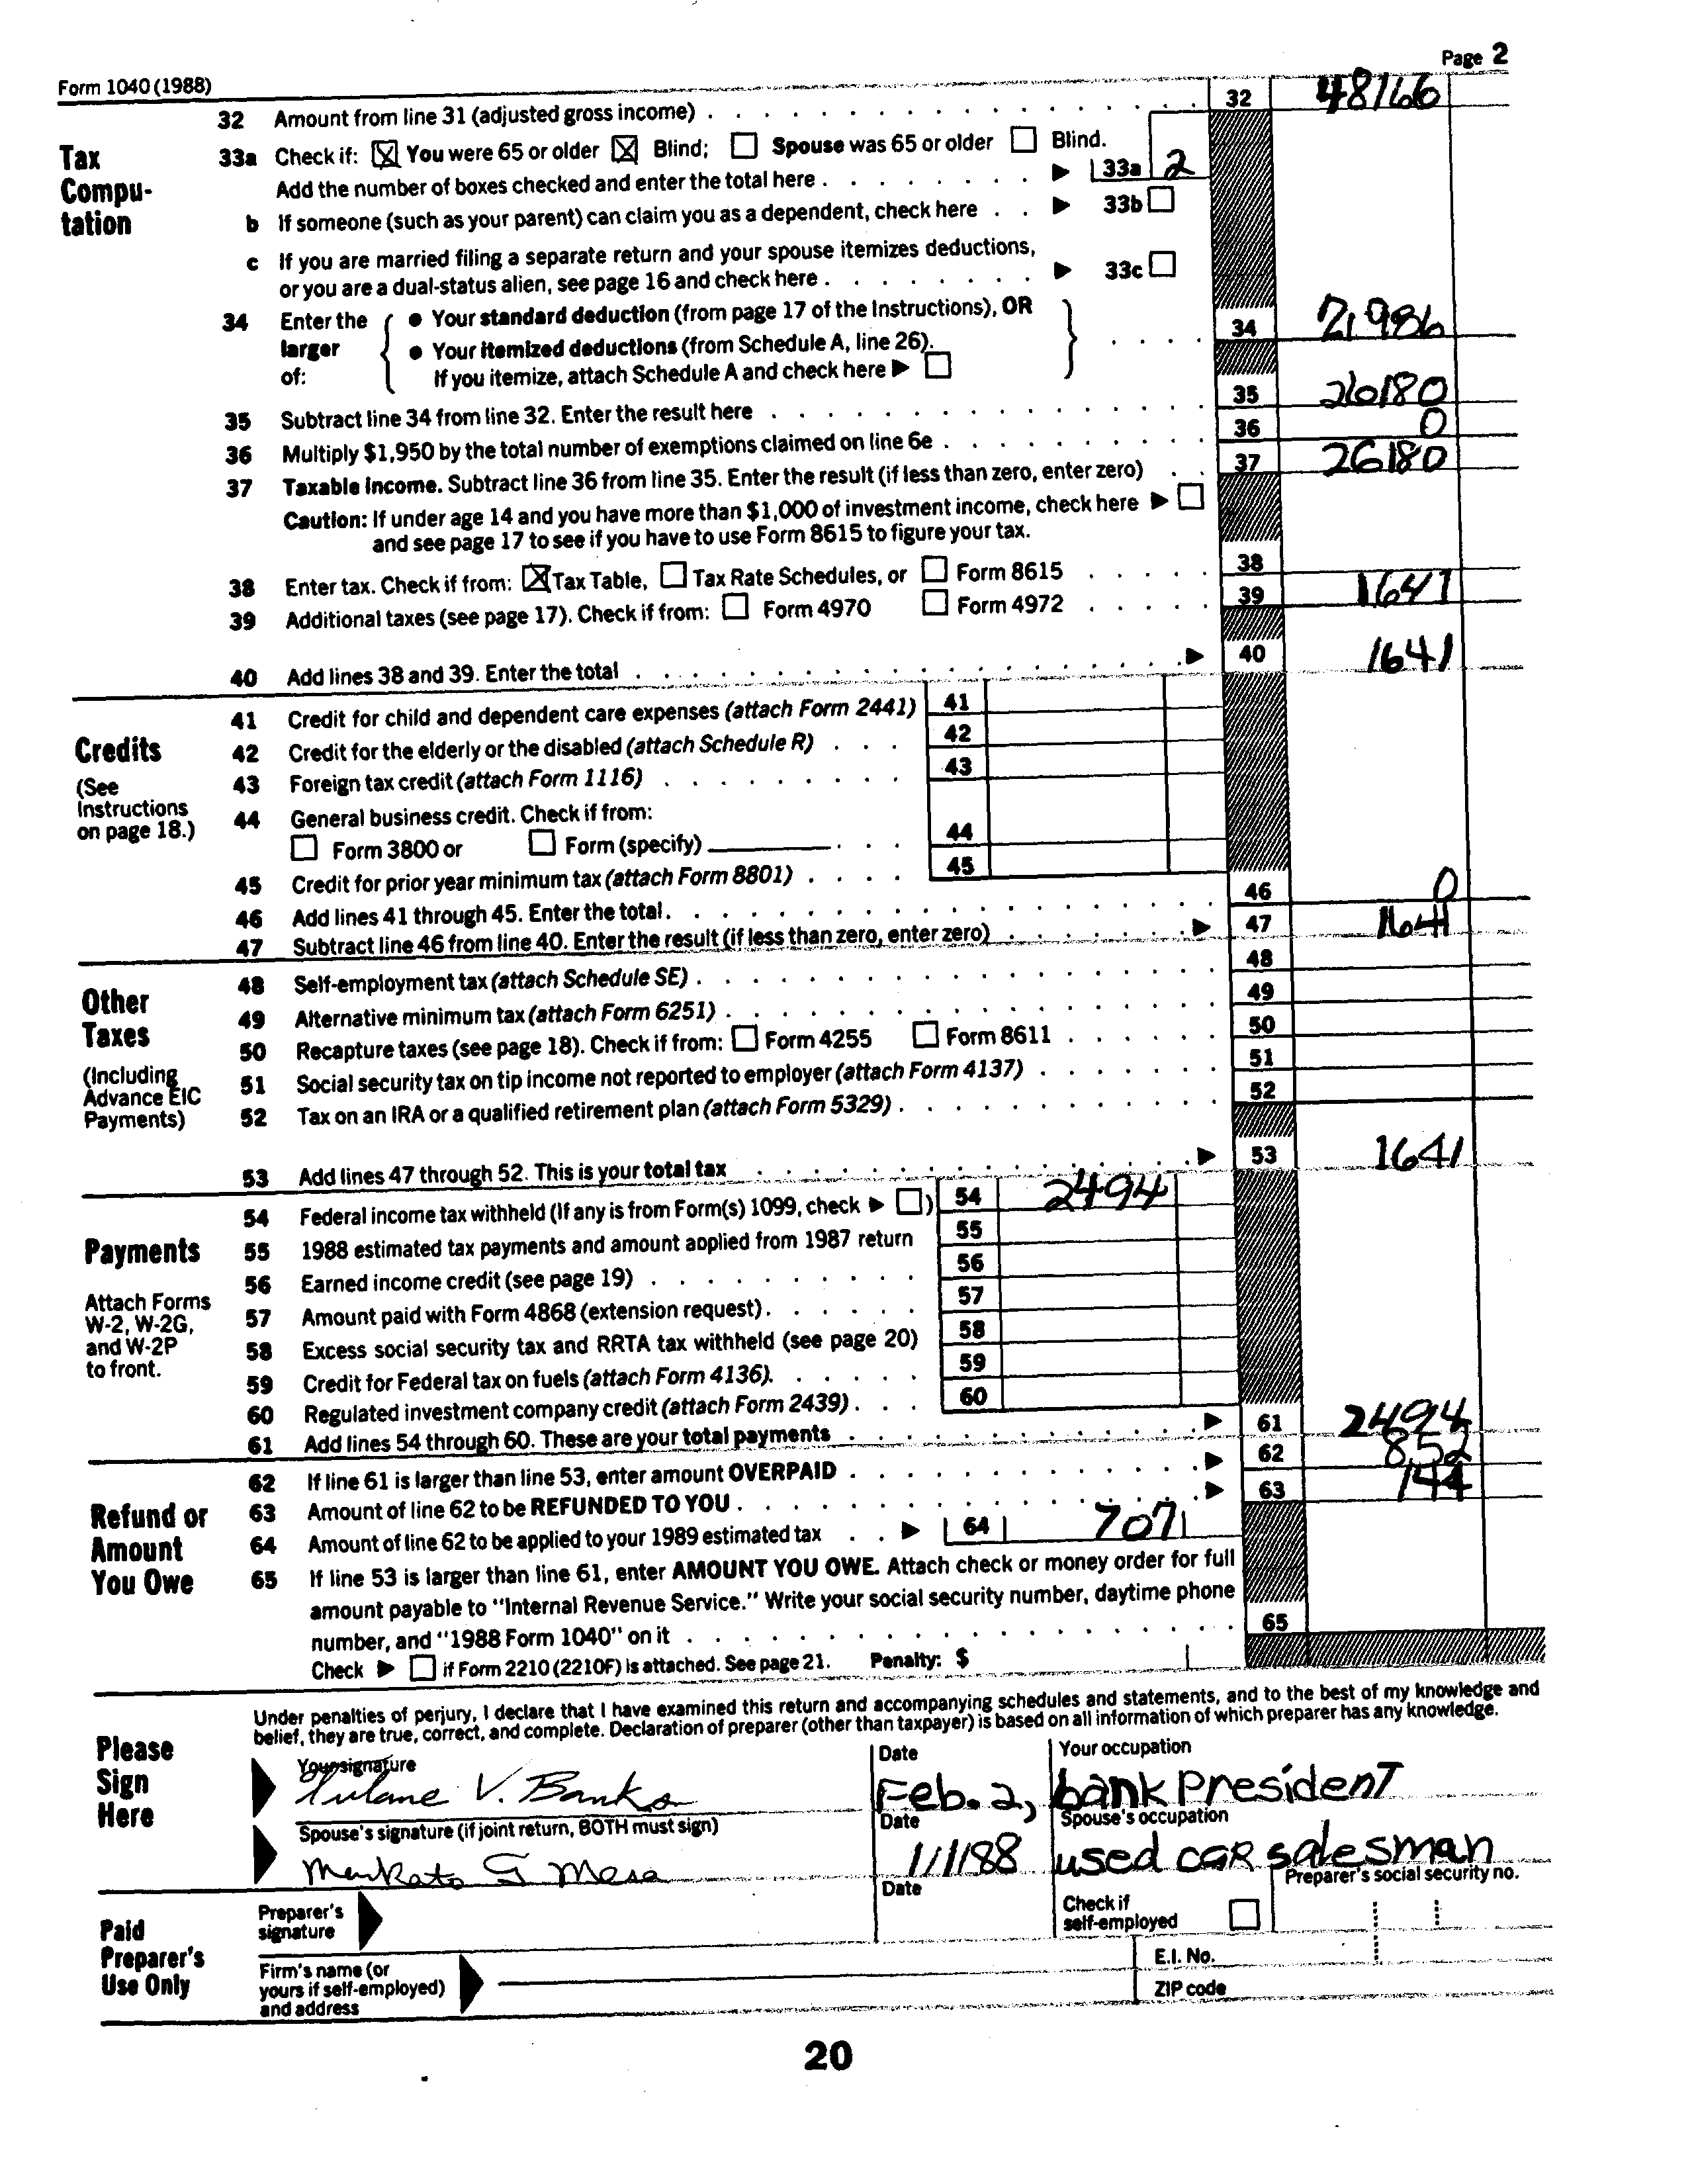 Form 1040 (1988)
Page 2
32 Amount from line 31 (adjusted gross income) 32 48166
Tax Computation
33a Check if: ☒ You were 65 or older ☒ Blind; ☐ Spouse was 65 or older ☐ Blind.
Add the number of boxes checked and enter the total here ▶ 33a 2
b If someone (such as your parent) can claim you as a dependent, check here ▶ 33b ☐
c If you are married filing a separate return and your spouse itemizes deductions,
or you are a dual-status alien, see page 16 and check here ▶ 33c ☐
34 Enter the larger of:
● Your standard deduction (from page 17 of the Instructions), OR
● Your itemized deductions (from Schedule A, line 26).
If you itemize, attach Schedule A and check here ▶ ☐
34 21986
35 Subtract line 34 from line 32. Enter the result here 35 26180
36 Multiply $1,950 by the total number of exemptions claimed on line 6e 36 0
37 Taxable income. Subtract line 36 from line 35. Enter the result (if less than zero, enter zero) 37 26180
Caution: If under age 14 and you have more than $1,000 of investment income, check here ▶ ☐
and see page 17 to see if you have to use Form 8615 to figure your tax.
38 Enter tax. Check if from: ☒ Tax Table, ☐ Tax Rate Schedules, or ☐ Form 8615 38
39 Additional taxes (see page 17). Check if from: ☐ Form 4970 ☐ Form 4972 39 1641
40 Add lines 38 and 39. Enter the total ▶ 40 1641
Credits
(See Instructions on page 18.)
41 Credit for child and dependent care expenses (attach Form 2441) 41
42 Credit for the elderly or the disabled (attach Schedule R) 42
43 Foreign tax credit (attach Form 1116) 43
44 General business credit. Check if from:
☐ Form 3800 or ☐ Form (specify) 44
45 Credit for prior year minimum tax (attach Form 8801) 45
46 Add lines 41 through 45. Enter the total. 46 0
47 Subtract line 46 from line 40. Enter the result (if less than zero, enter zero) ▶ 47 1641
Other Taxes
(Including Advance EIC Payments)
48 Self-employment tax (attach Schedule SE) 48
49 Alternative minimum tax (attach Form 6251) 49
50 Recapture taxes (see page 18). Check if from: ☐ Form 4255 ☐ Form 8611 50
51 Social security tax on tip income not reported to employer (attach Form 4137) 51
52 Tax on an IRA or a qualified retirement plan (attach Form 5329) 52
53 Add lines 47 through 52. This is your total tax ▶ 53 1641
Payments
Attach Forms W-2, W-2G, and W-2P to front.
54 Federal income tax withheld (If any is from Form(s) 1099, check ▶ ☐) 54 2494
55 1988 estimated tax payments and amount applied from 1987 return 55
56 Earned income credit (see page 19) 56
57 Amount paid with Form 4868 (extension request) 57
58 Excess social security tax and RRTA tax withheld (see page 20) 58
59 Credit for Federal tax on fuels (attach Form 4136). 59
60 Regulated investment company credit (attach Form 2439) 60
61 Add lines 54 through 60. These are your total payments ▶ 61 2494
Refund or Amount You Owe
62 If line 61 is larger than line 53, enter amount OVERPAID ▶ 62 852
63 Amount of line 62 to be REFUNDED TO YOU ▶ 63 144
64 Amount of line 62 to be applied to your 1989 estimated tax ▶ 64 707
65 If line 53 is larger than line 61, enter AMOUNT YOU OWE. Attach check or money order for full
amount payable to "Internal Revenue Service." Write your social security number, daytime phone
number, and "1988 Form 1040" on it 65
Check ▶ ☐ if Form 2210 (2210F) is attached. See page 21. Penalty: $
Please Sign Here
Under penalties of perjury, I declare that I have examined this return and accompanying schedules and statements, and to the best of my knowledge and
belief, they are true, correct, and complete. Declaration of preparer (other than taxpayer) is based on all information of which preparer has any knowledge.
Your signature Date Your occupation
Tulane V. Banks Feb. 2, bank President
Spouse's signature (if joint return, BOTH must sign) Date Spouse's occupation
Mankato G Mesa 1/1/88 used car salesman
Paid Preparer's Use Only
Preparer's signature Date Check if self-employed ☐ Preparer's social security no.
Firm's name (or yours if self-employed) and address
E.I. No.
ZIP code
20